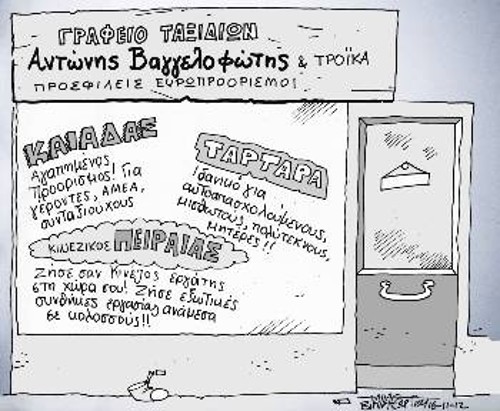 ΓΡΑΦΕΙΟ ΤΑΞΙΔΙΩΝ
Αντώνης Βαγγελοφώτης & ΤΡΟΪΚΑ
ΠΡΟΣΦΙΛΕΙΣ ΕΥΡΩΠΡΟΟΡΙΣΜΟΙ
ΚΑΙΑΔΑΣ
Αγαπημένος
Προορισμος! Για
γέροντες, ΑΜΕΑ,
συνταξιούχους
ΤΑΡΤΑΡΑ
Ιδανικό για
αυτοαπασχολούμενους,
μισθωτούς, πολύτεκνους,
μητέρες!!
ΚΙΝΕΖΙΚΟΣ ΠΕΙΡΑΙΑΣ
Ζήσε σαν Κινέζος εργάτης
στη χώρα σου! Ζήσε εξωτικές
συνθήκες εργασίας ανάμεσα
σε κολοσσούς!!